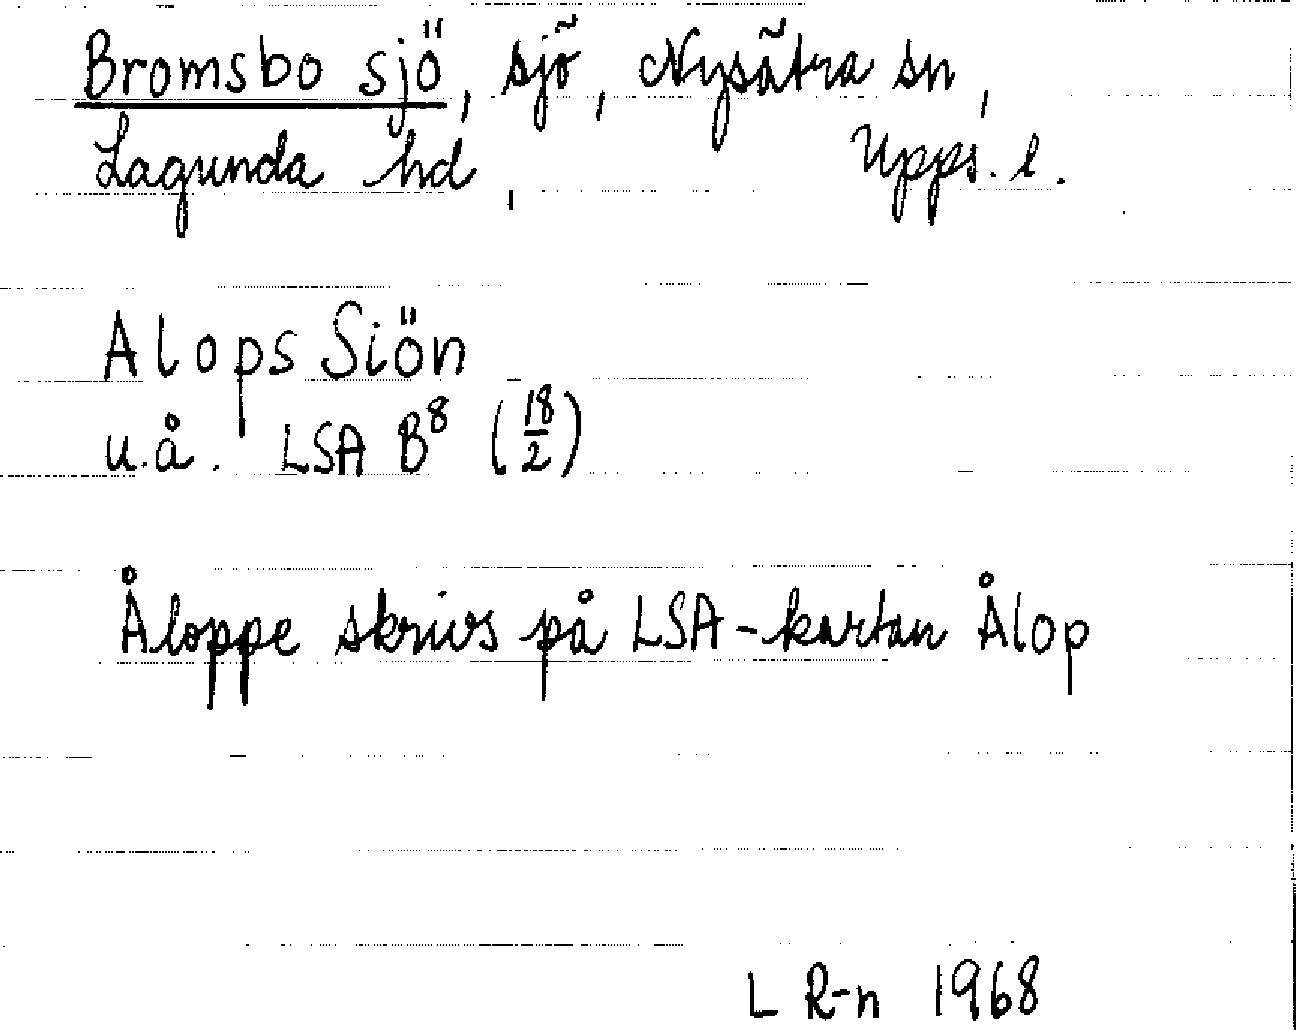 Bromsbo sjö, sjö, Nysätra sn,
Lagunda hd, Upps. l.
Alops Siön
u.å. LSA B⁸ (18/2)
Åloppe skrivs på LSA-kartan Ålop
L R-n 1968